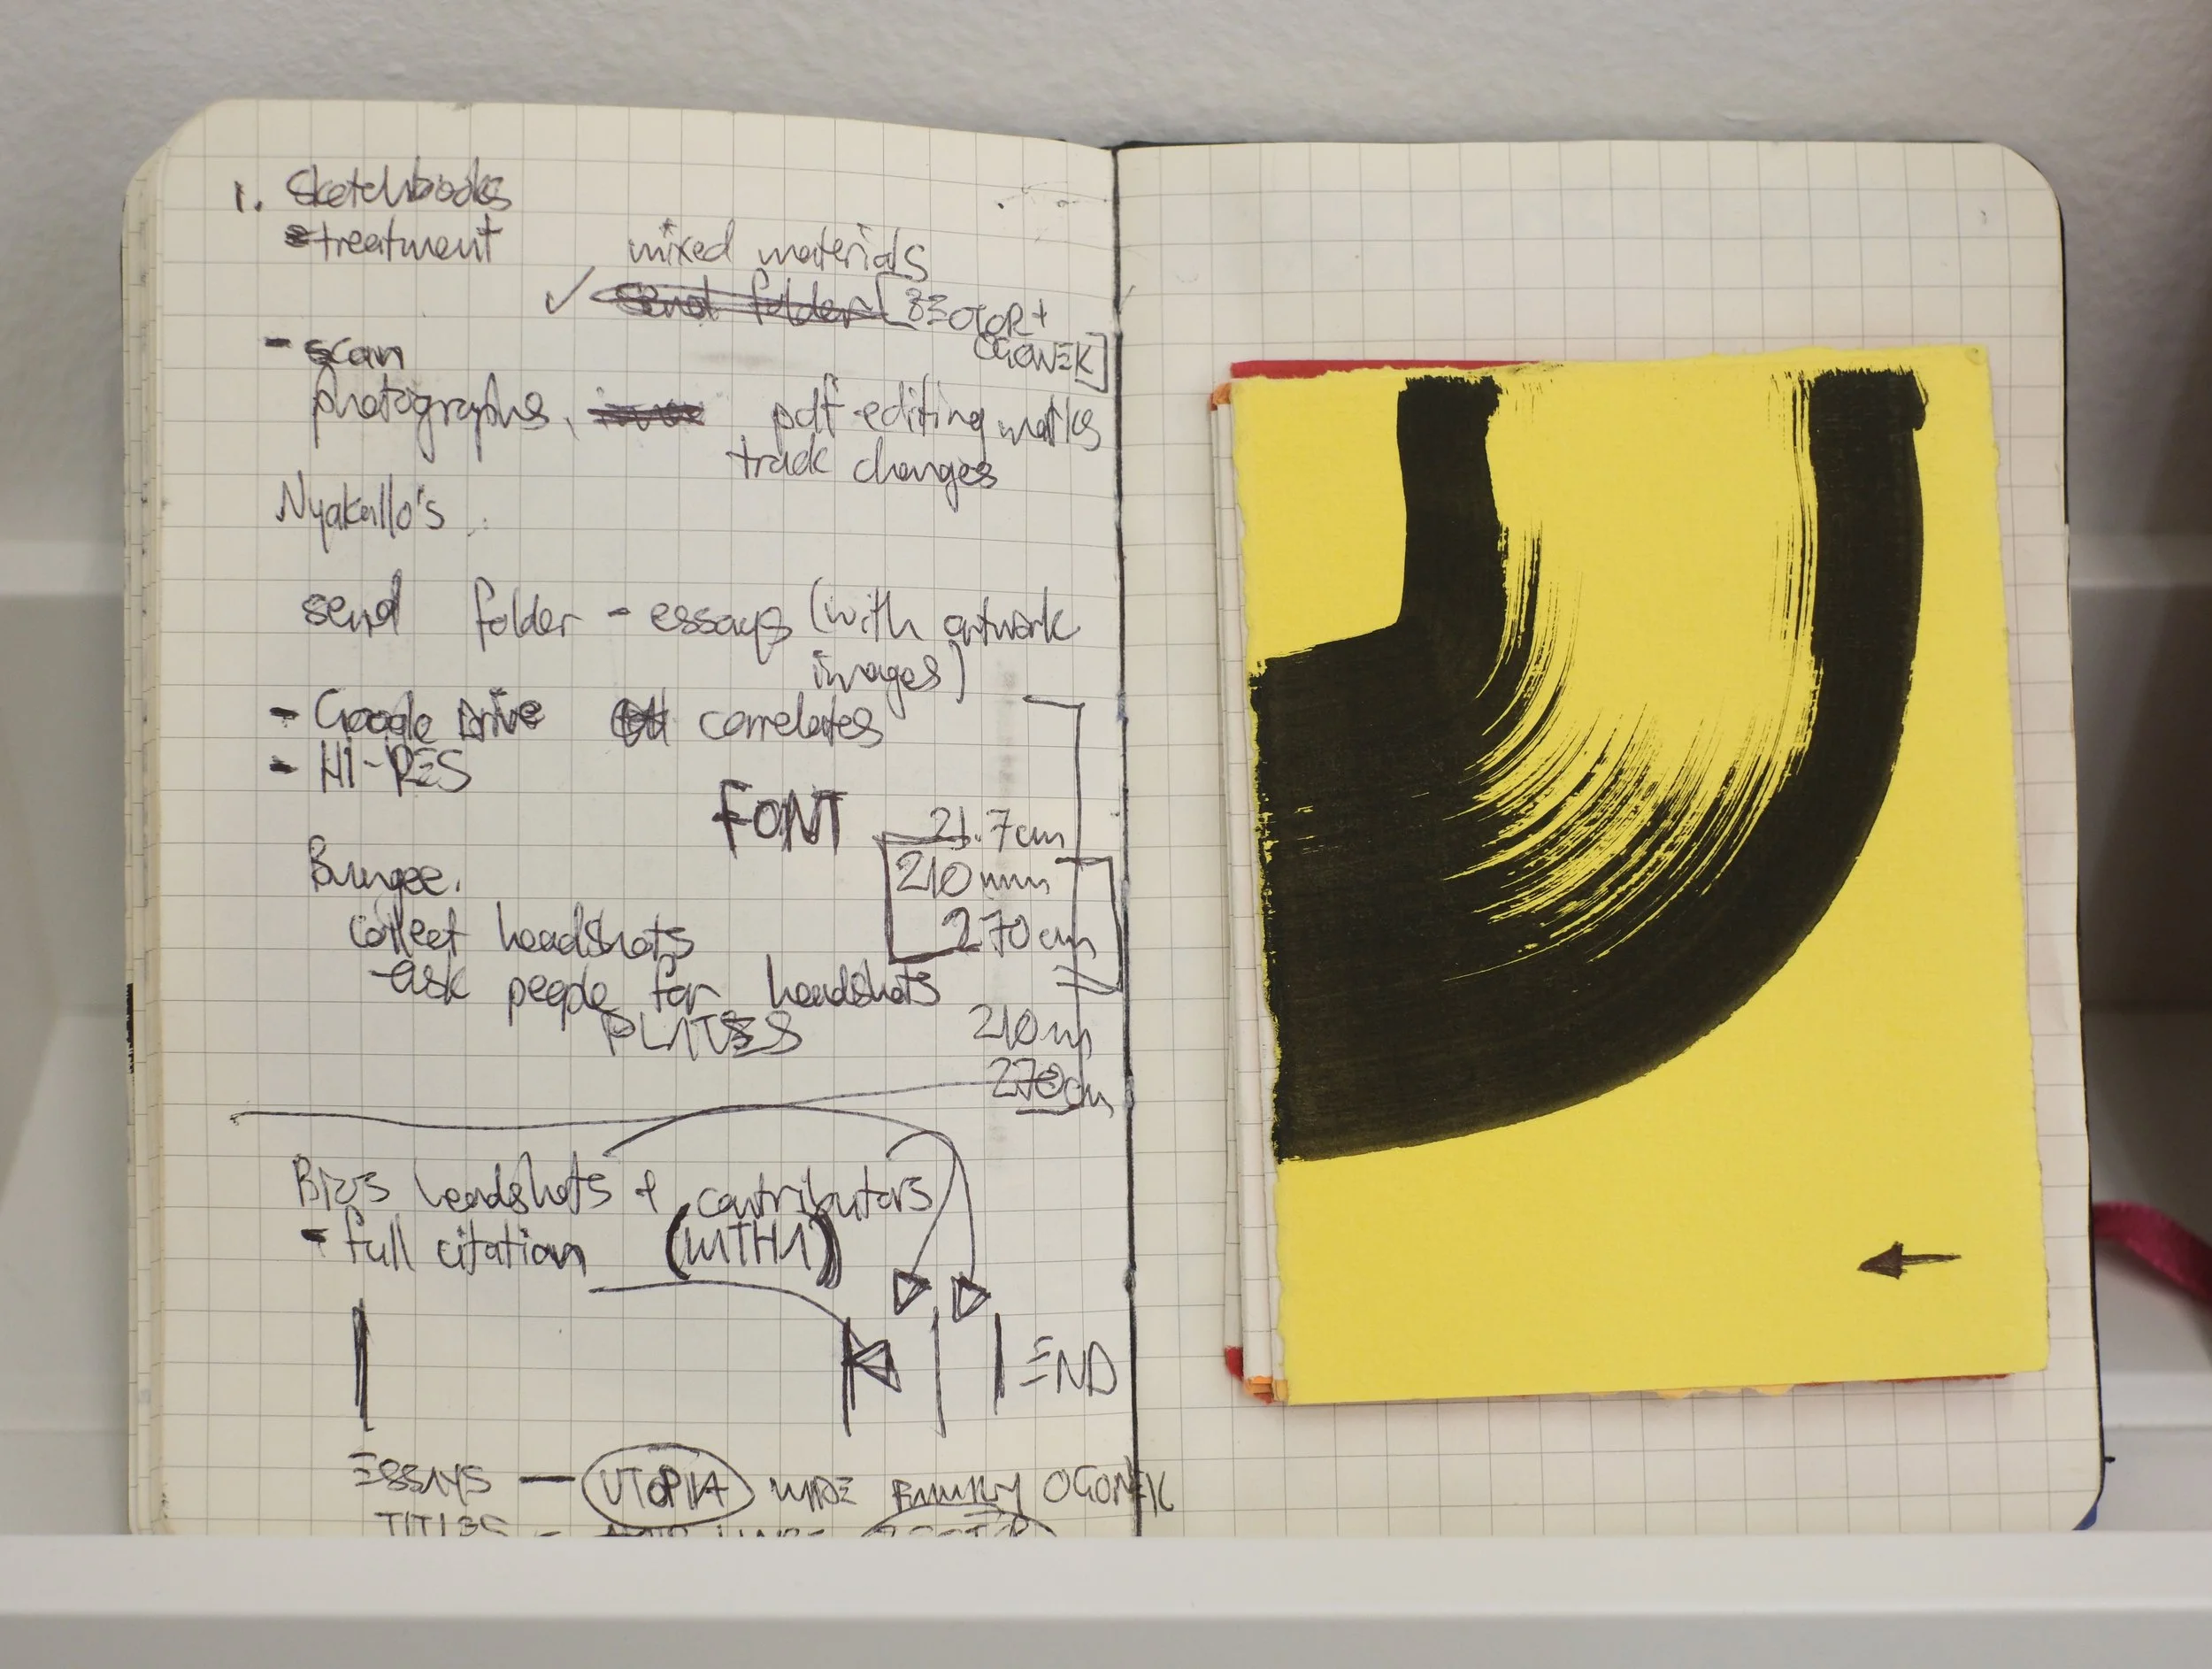 1. Sketchbooks
treatment
mixed materials
✓ send folder [BEOTOR+
OGONEK]
- scan
photographs, pdf-editing marks
track changes
Nyakallo's
send folder - essays (with artwork
images)
- Google Drive correlates
- HI-RES
FONT
21.7cm
Bungee.
210mm
collect headshots
270cm
-ask people for headshots
PLATES
210m
270cm
headshots + contributors
- full citation
END
ESSAYS — UTOPIA FAMILY OGONEK
TITLES -